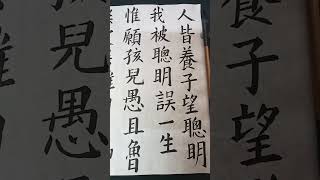 人皆養子望聰明
我被聰明誤一生
惟願孩兒愚且魯